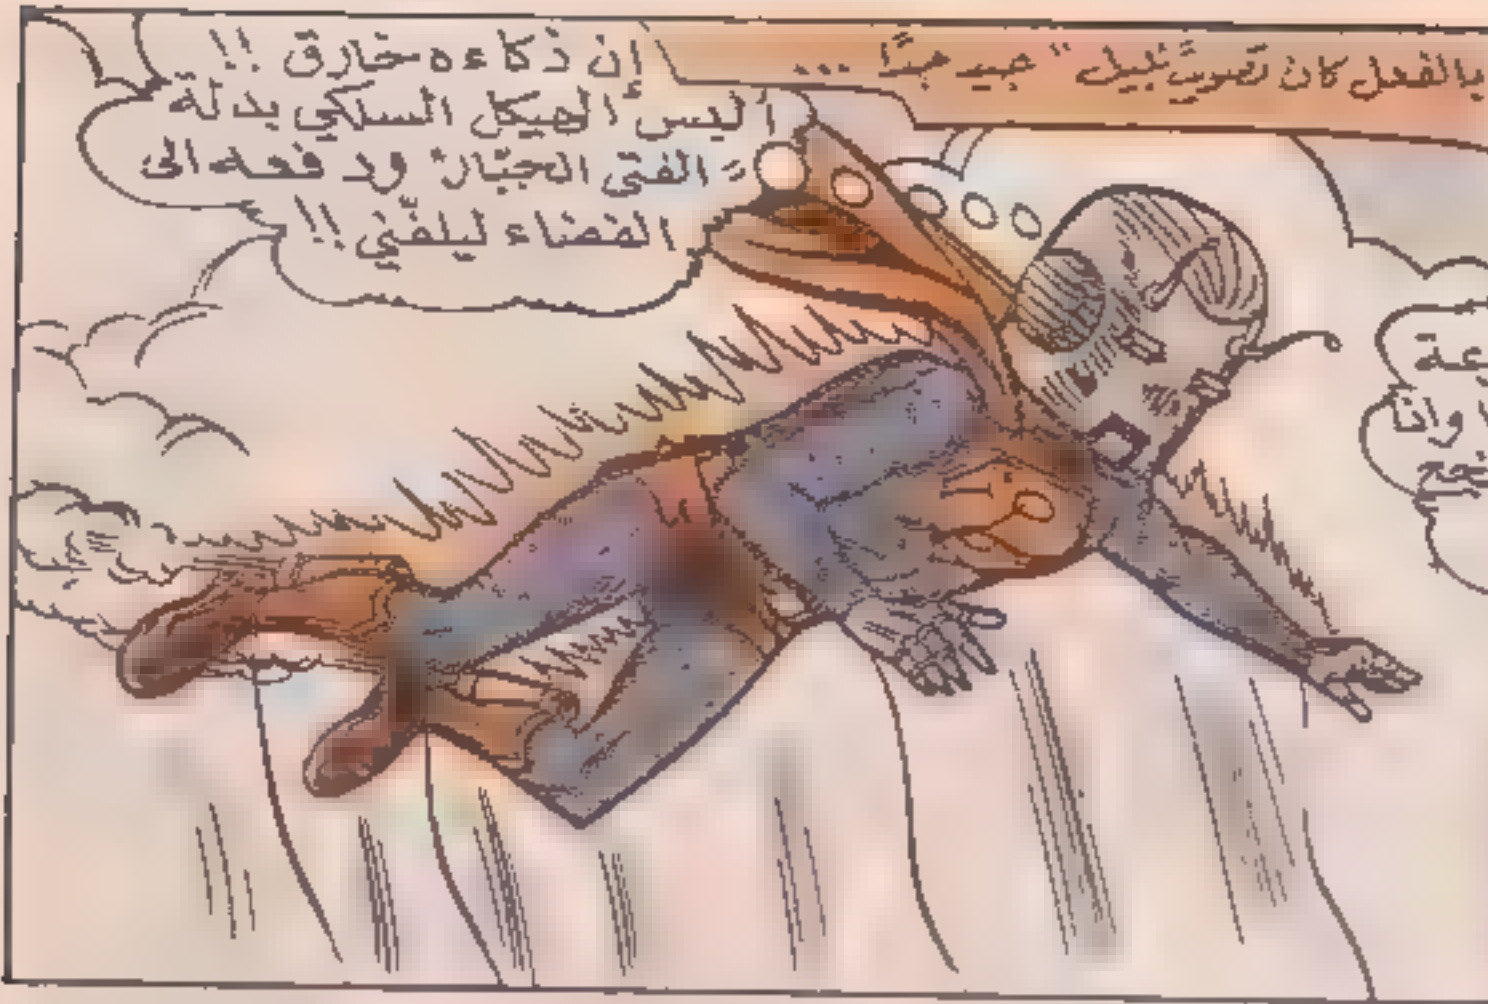 بالفعل كان تصويب نبيل " جيد جدًّا ...
إن ذكاءه خارق !!
ألبس الهيكل السلكي بدلة
" الفتى الجبّار " ودفعه الى
الفضاء ليلفّني !!
عة
وانا
نجح